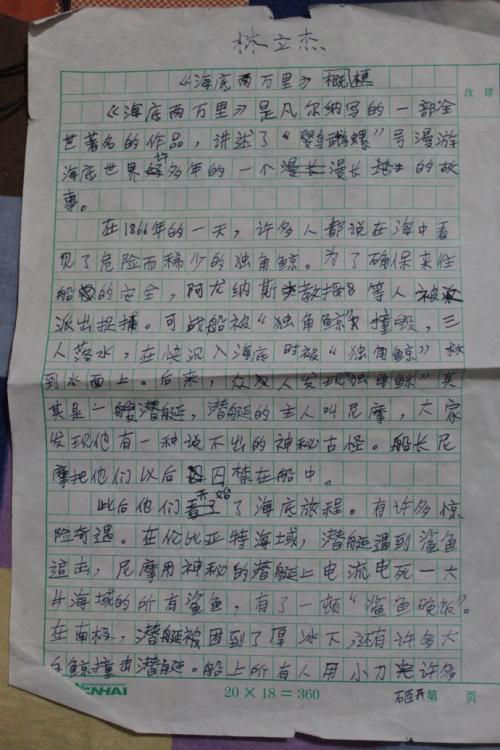 林立杰
《海底两万里》概梗
改错
《海底两万里》是凡尔纳写的一部全
世著名的作品，讲述了“鹦鹉螺”号漫游
海底世界许多年的一个漫长的故
事。
在1866年的一天，许多人都说在海中看
见了危险而稀少的独角鲸。为了确保来往
船的安全，阿龙纳斯教授等人被
派出捉捕。可战船被“独角鲸”撞毁，三
人落水，在快沉入海底时被“独角鲸”救
到水面上。后来，众人发现“独角鲸”其
其是一艘潜艇，潜艇的主人叫尼摩，大家
发现他有一种说不出的神秘古怪。船长尼
摩把他们以后囚禁在船中。
此后他们开始了海底旅程。有许多惊
险奇遇。在伦比亚特海域，潜艇遇到鲨鱼
追击，尼摩用神秘的潜艇上电流电死一大
片海域的所有鲨鱼，有了一顿“鲨鱼晚饭”。
在南极，潜艇被困到了厚冰下，还有许多大
白鲸撞击潜艇。船上所有人用小刀砸开许多
ENHAI
20×18=360
第 页